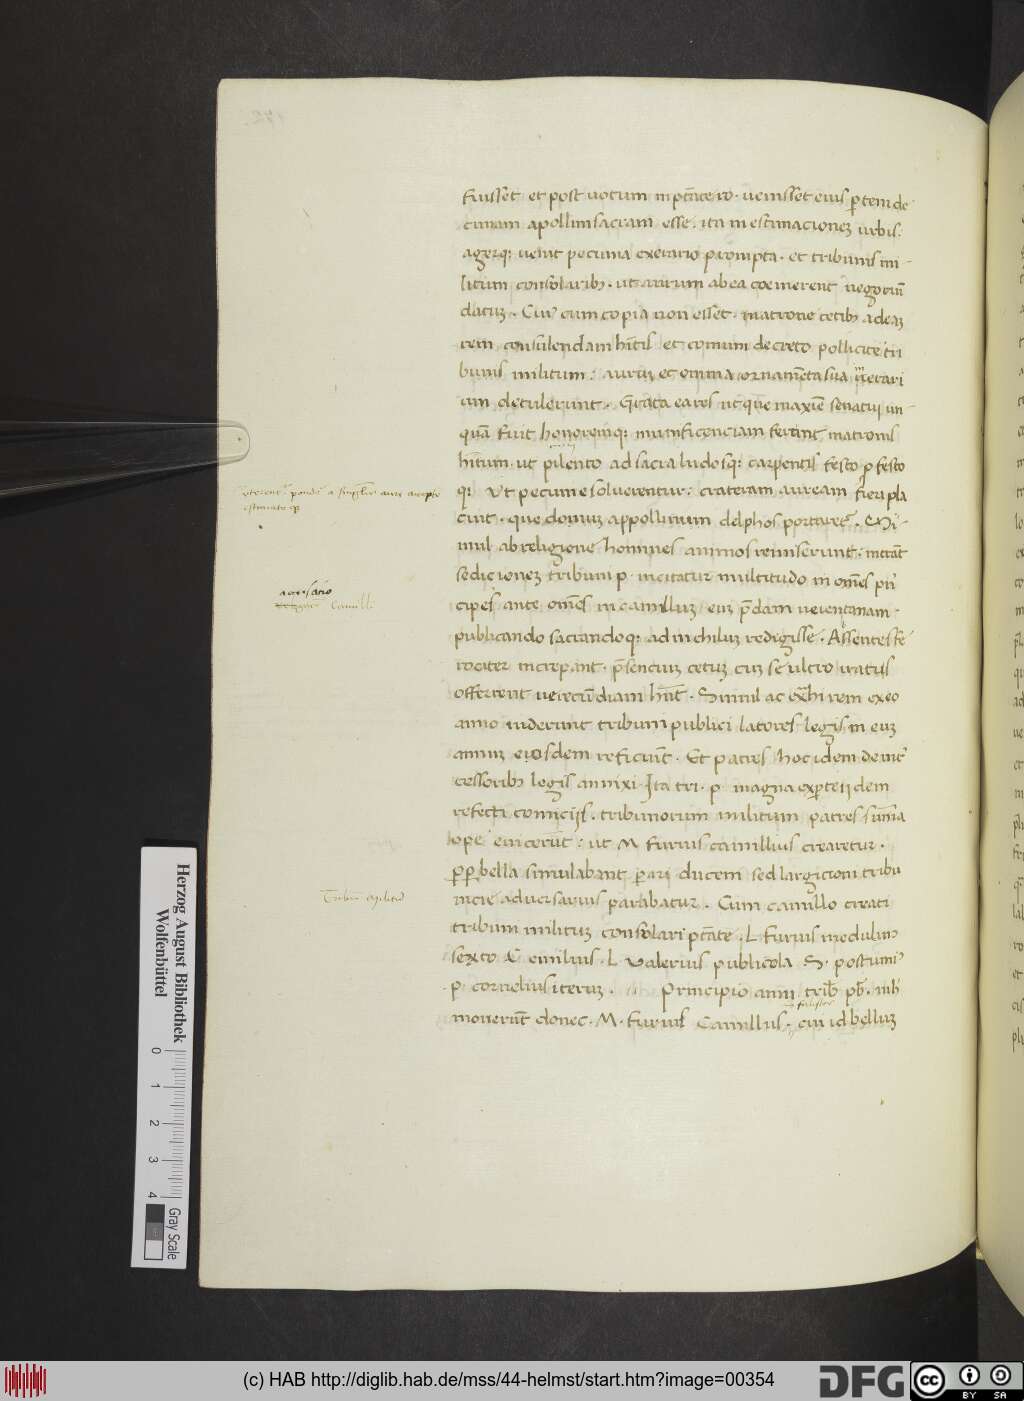 fuisset et post uotum in ptãte ro · uenisset eius ꝑtem de
cimam apollini sacram esse . ita in estimacionez urbis .
agerq; uenit pecunia ex erario prompta . et tribunis mi -
litum consolaribꝫ . ut aurum ab ea coemerent negotiũ
datuz . Cui' cum copia non esset . matrone cetibꝫ ad eaz
rem consulendam hītis et comuni decreto pollicite tri
bunis militum : auruz et omnia ornamẽta sua in erari
um detulerunt . Grata ea res ut que maxiẽ senatuj un -
quã fuit honoremq; munificenciam ferunt matronis
hītum . ut pilento ad sacra ludosq; carpentis festo ꝓfesto
q; Vt pecunie soluerentur : crateram auream fieri pla
cuit . que donuz appollinum delphos portaret' . Si
mul ab religione homines animos remiserunt . instãt
sedicionez tribuni p . incitatur multitudo in om̃es pri
cipes ante om̃es in camilluz euz p̃dam ueientanam .
publicando sacrandoq; ad nichiluz redigisse . Assentes fe
rociter increpant . p̃senciuz cetuz cuz se ultro iratis
offerrent uerecũdiam hñt . Simul ac ext̃hi rem ex eo
anno uiderunt tribuni publici latores legis in euz
annuz eiosdem reficiũt . Et patres hoc idem de int'
cessoribꝫ legis annixi . Ita tri . p . magna ex ꝑte ijdem
refecti comicijs . tribunorum militum patres sum̃a
ope euicerũt : ut M furius camillius crearetur .
ꝓpt̃ bella simulabant ꝑari ducem sed largicioni tribu
nicie aduersarius parabatur . Cum camillo creati
tribuni militũz consolari ptãte . L . furius medulin'
sexto C emilius . L Valerius publicola . S . postumi'
p . cornelius iteruz . Principio anni trib̃ pb̃ . nihil
mouerũt donec . M . furius Camillus . cui id belluz
acusatio
Camilli
Tribuni militũ
Herzog August Bibliothek
Wolfenbüttel
0 1 2 3 4
Gray Scale
(c) HAB http://diglib.hab.de/mss/44-helmst/start.htm?image=00354
DFG
cc BY SA